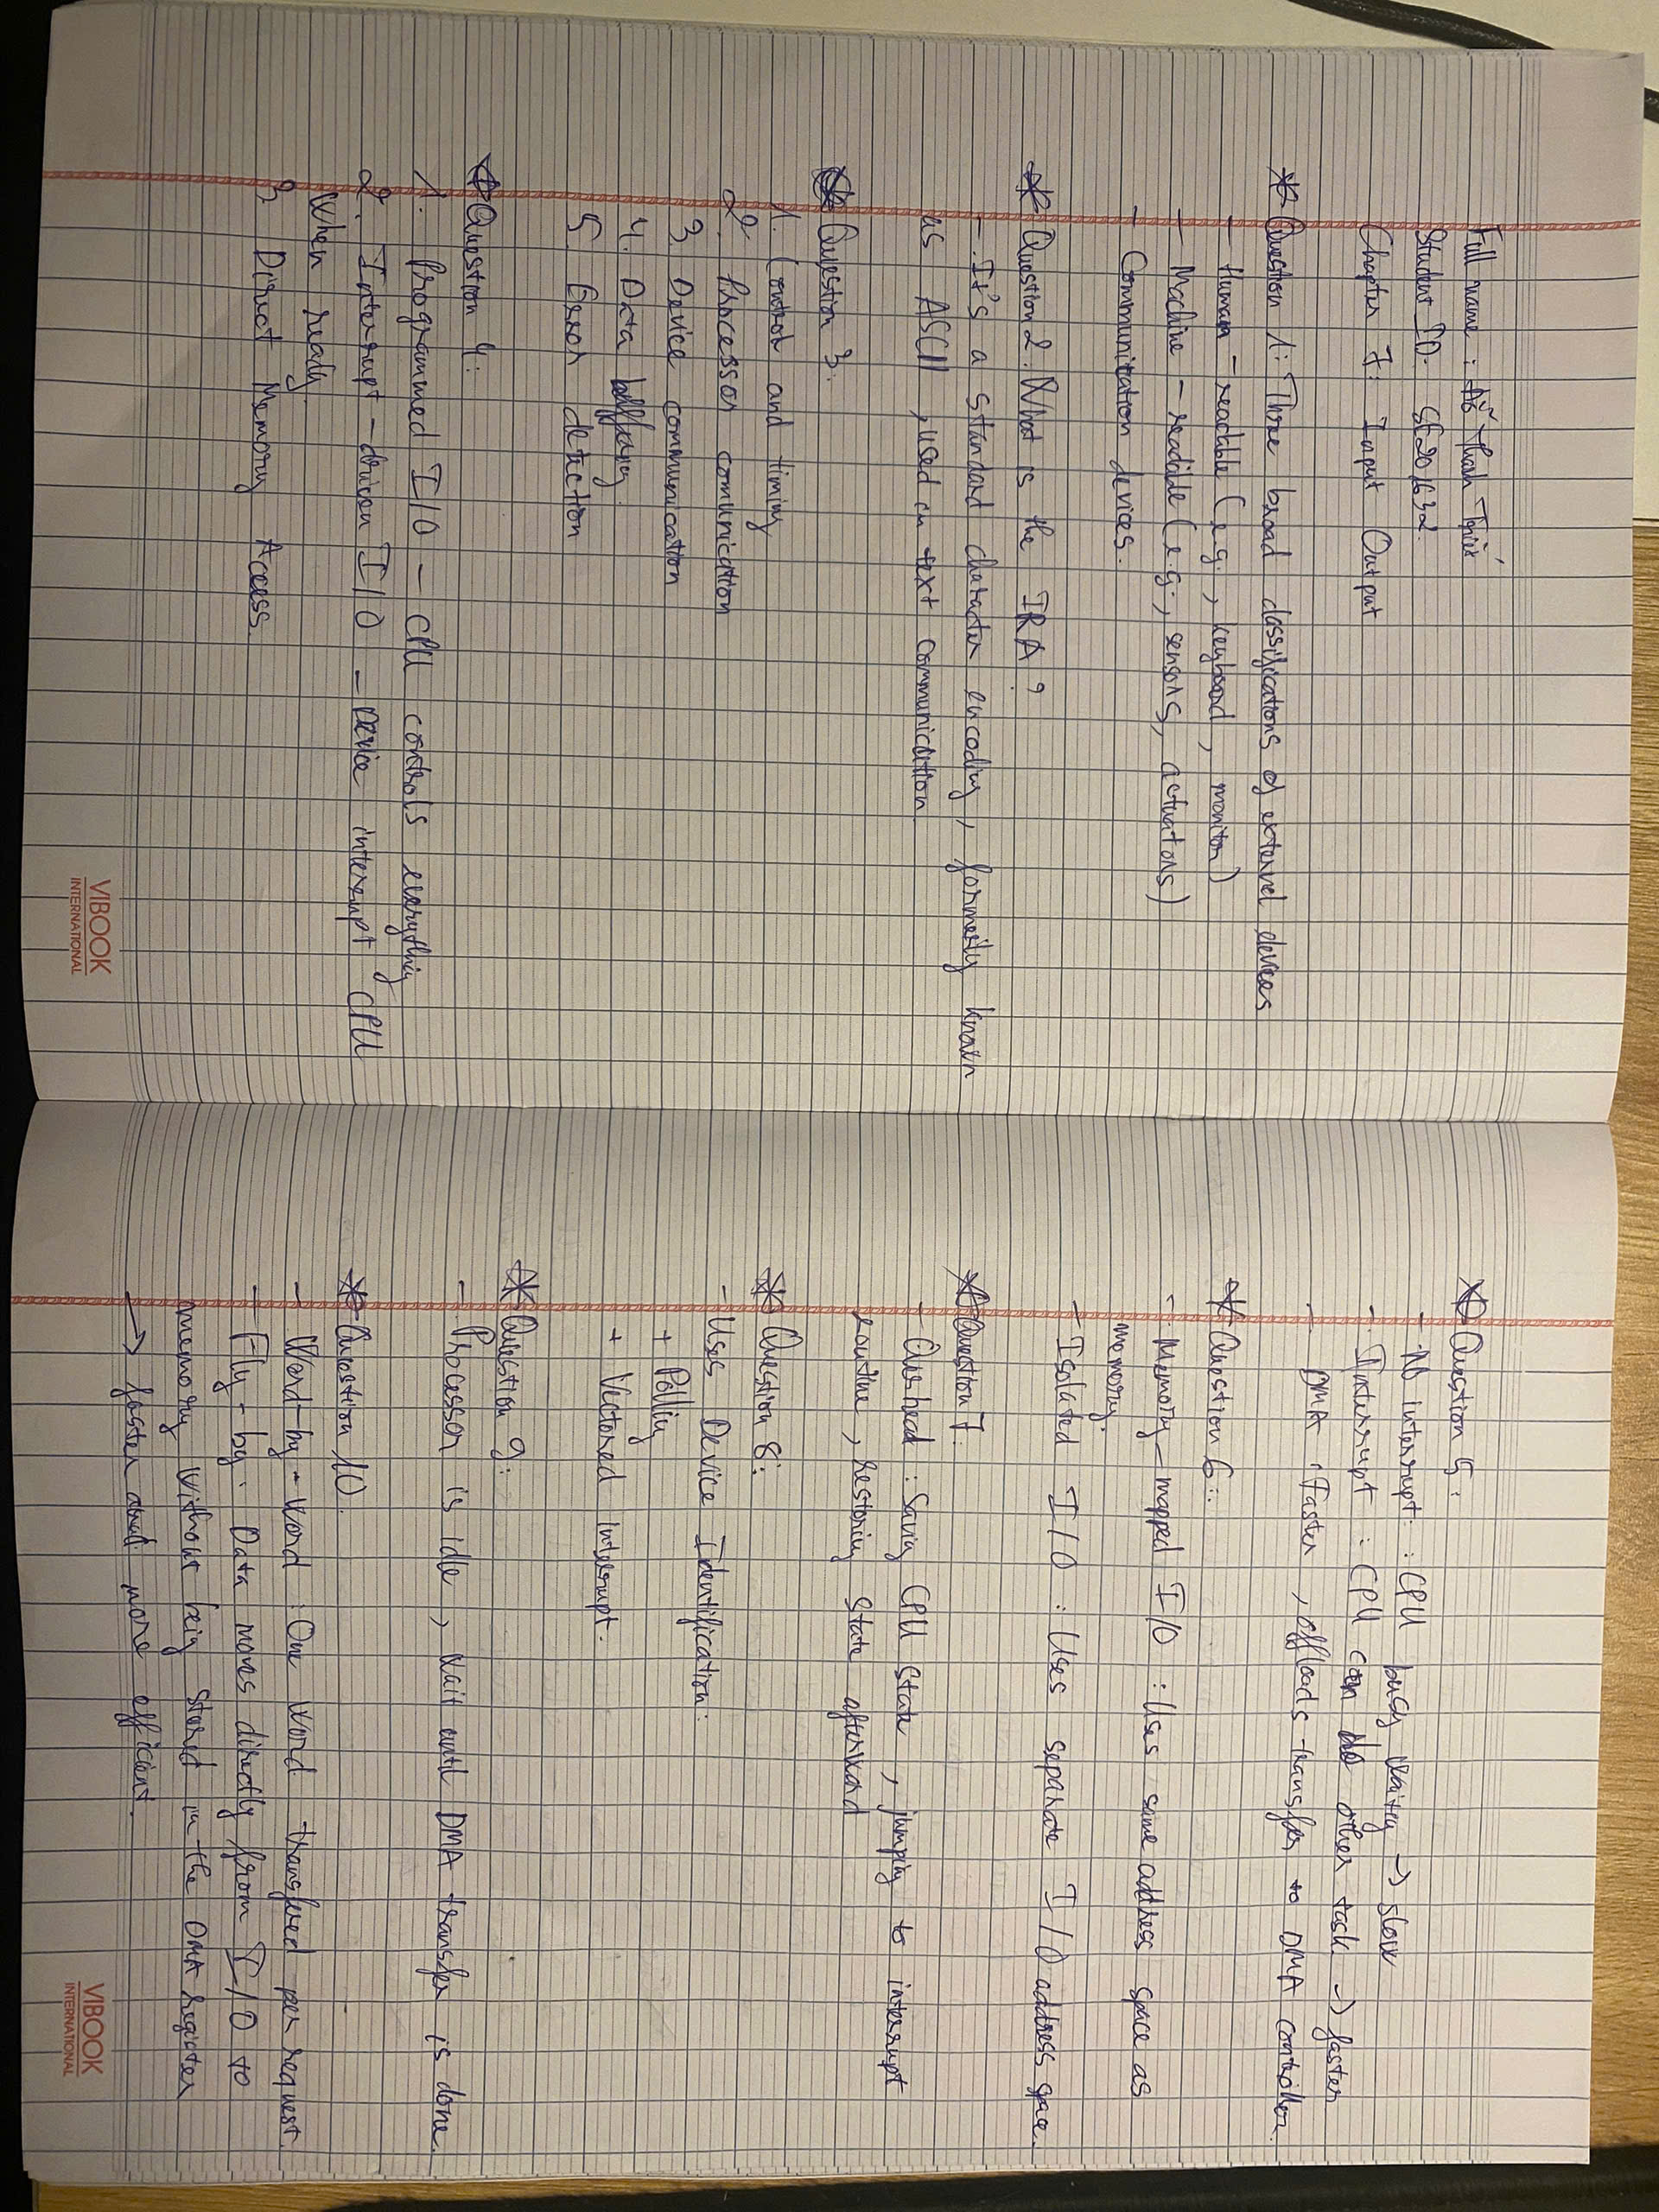 Full name : Đỗ Thành Triết
Student ID: SE201632.
Chapter 7: Input Output
* Question 1: Three broad classifications of external devices
- Human - readable (e.g., keyboard, monitor)
- Machine - readable (e.g., sensors, actuators)
- Communitation devices.
* Question 2: What is the IRA?
- It's a standard character encoding, formerly known
as ASCII, used in text communication.
* Question 3:
1. Control and timing
2. Processor comunication
3. Device communication
4. Data buffering.
5. Error detection
* Question 4:
1. Programmed I/O - CPU controls everything
2. Interrupt - driven I/O - Device interrupt CPU
When ready.
3. Direct Memory Access.
VIBOOK
INTERNATIONAL
* Question 5:
- No interrupt: CPU busy waiting → slow
- Interrupt: CPU can do other task → faster
- DMA: Faster, offloads transfer to DMA controller.
* Question 6:
- Memory-mapped I/O : Uses same address space as
memory.
- Isolated I/O : Uses separate I/O address space.
* Question 7:
- Overhead : Saving CPU state, jumping to interrupt
routine, restoring state afterward
* Question 8:
- Uses Device Identification:
+ Polling
+ Vectored interrupt.
* Question 9:
- Processor is idle, wait until DMA transfer is done.
* Question 10.
- Word-by-word : One word transfered per request.
- Fly-by: Data moves directly from I/O to
memory without being stored in the DMA register
→ faster and more efficient.
VIBOOK
INTERNATIONAL